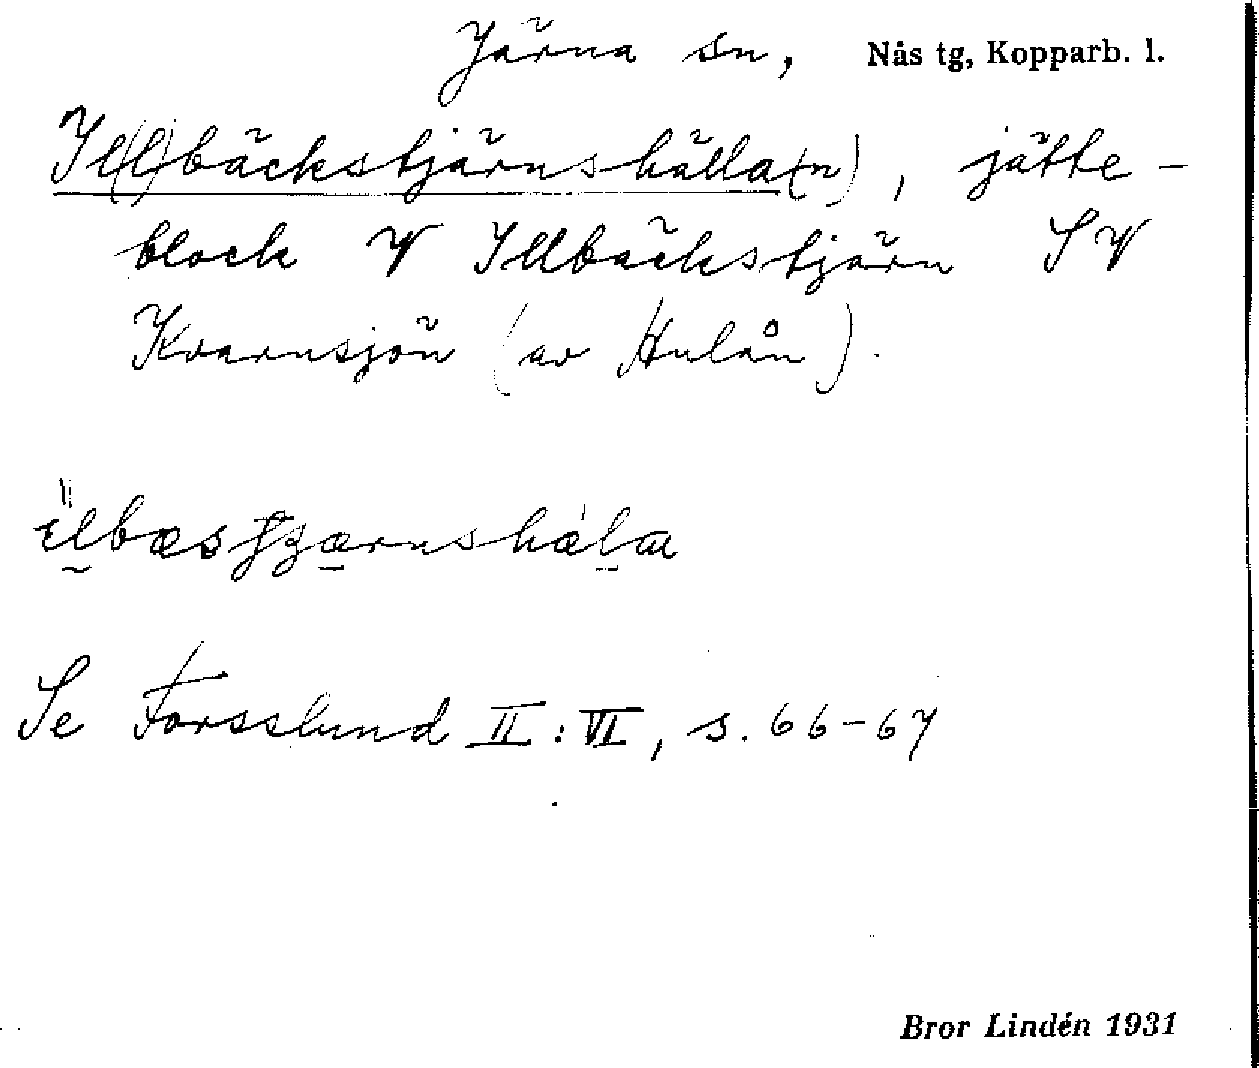 Järna sn, Nås tg, Kopparb. l.
Il(l)bäckstjärnshälla(n), jätte-
block V Illbäckstjärn SV
Kvarnsjön (av Hulån).
Se Forsslund II:VI, s. 66-67
Bror Lindén 1931